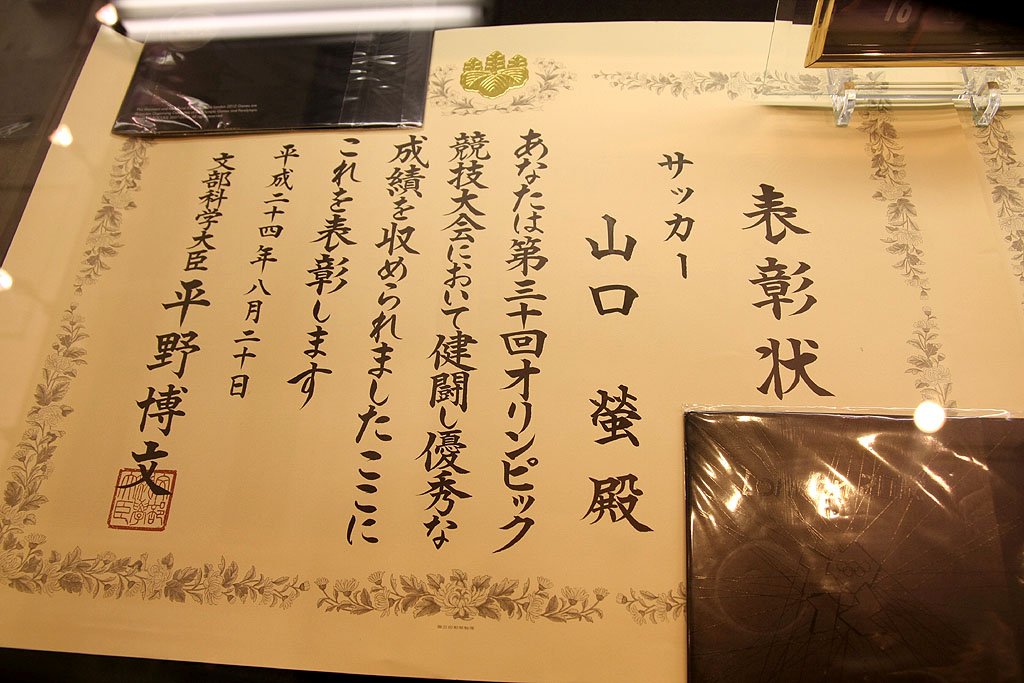 表彰状
サッカー
山口 螢 殿
あなたは第三十回オリンピック
競技大会において健闘し優秀な
成績を収められましたここに
これを表彰します
平成二十四年八月二十日
文部科学大臣 平野博文
16